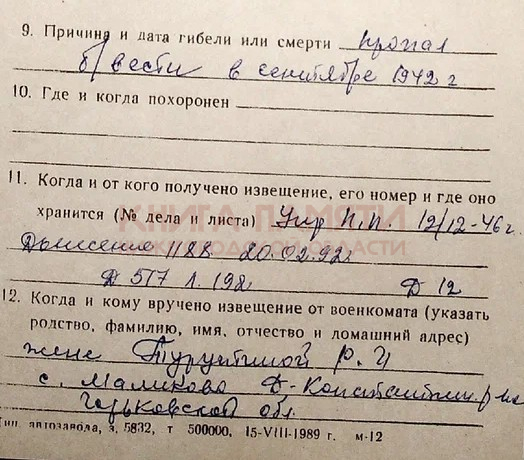 9. Причина и дата гибели или смерти пропал
б/вести в сентябре 1942 г
10. Где и когда похоронен
11. Когда и от кого получено извещение, его номер и где оно
хранится (№ дела и листа) Упр П.П. 12/12-46 г.
КНИГА ПАМЯТИ
НИЖЕГОРОДСКОЙ ОБЛАСТИ
Донесение 1188 20.02.92г
Д 517 л. 198 Д 12
12. Когда и кому вручено извещение от военкомата (указать
родство, фамилию, имя, отчество и домашний адрес)
жене
с. Маликово Д-Константин. р-на
Горьковской обл
Тип. автозавода, з. 5832, т 500000, 15-VIII-1989 г. м-12